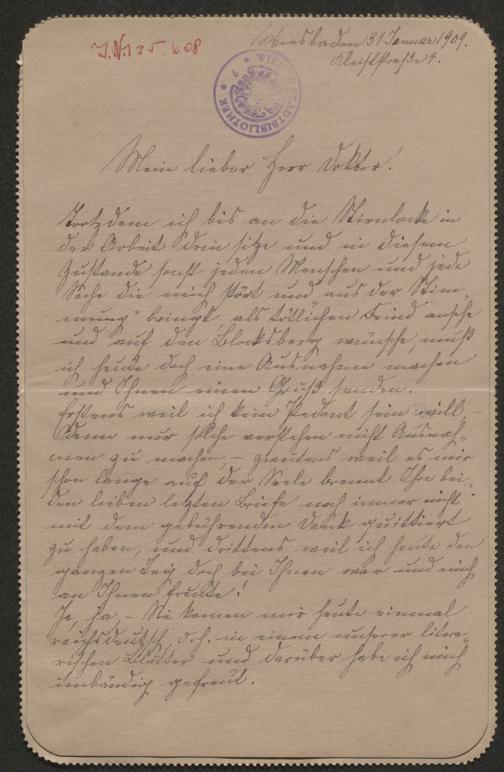 J.N. 135.608
Wiesbaden 31 Januar 1909.
Kleiststraße 4.
WIENER STADTBIBLIOTHEK
Mein lieber Herr Doktor!
Trotzdem ich bis an die Stirnlocke in
der Arbeit drin sitze und in diesem
Zustande sonst jeden Menschen und jede
Sache die mich stört und aus der „Stim-
mung“ bringt, als tötlichen Feind ansehe
und auf den Blocksberg wünsche, muß
ich heute doch eine Ausnahme machen
und Ihnen einen Gruß senden.
Erstens weil ich kein Pedant sein will –
denn nur solche verstehen nicht Ausnah-
men zu machen, – zweitens weil es mir
schon lange auf der Seele brennt Ihre bei-
den lieben letzten Briefe noch immer nicht
mit dem gebührenden Dank quittiert
zu haben, und drittens weil ich heute den
ganzen Tag doch bei Ihnen war und mich
an Ihnen freute!
Ja, ja, – Sie kamen mir heute einmal
reichsdeutsch, d.h. in einem unserer litera-
rischen Blätter und darüber habe ich mich
unbändig gefreut.